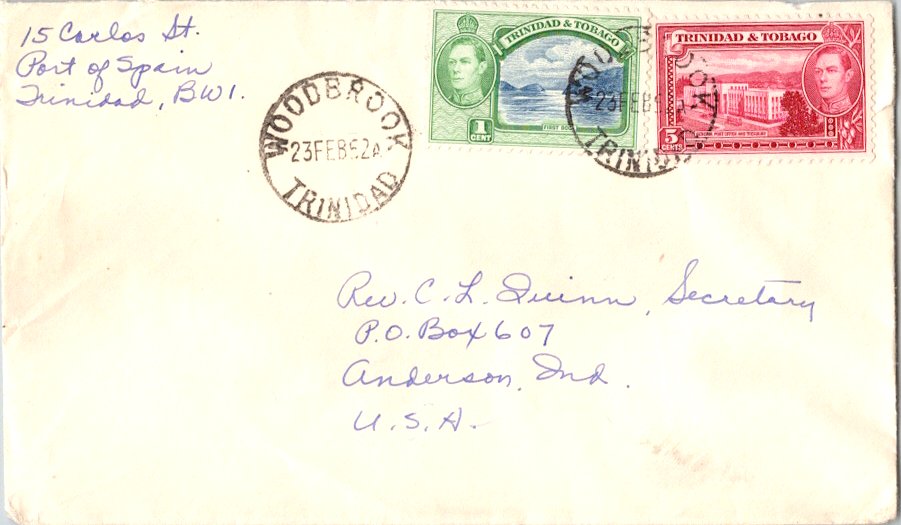 15 Carlos St.
Port of Spain
Trinidad, BWI.
WOODBROOK
23FEB52A
TRINIDAD
TRINIDAD & TOBAGO
1
CENT
FIRST BOCA
TRINIDAD & TOBAGO
5
CENTS
GENERAL POST OFFICE AND TREASURY
WOODBROOK
23FEB52A
TRINIDAD
Rev. C. L. Quinn, Secretary
P.O. Box 607
Anderson, Ind.
U.S.A.